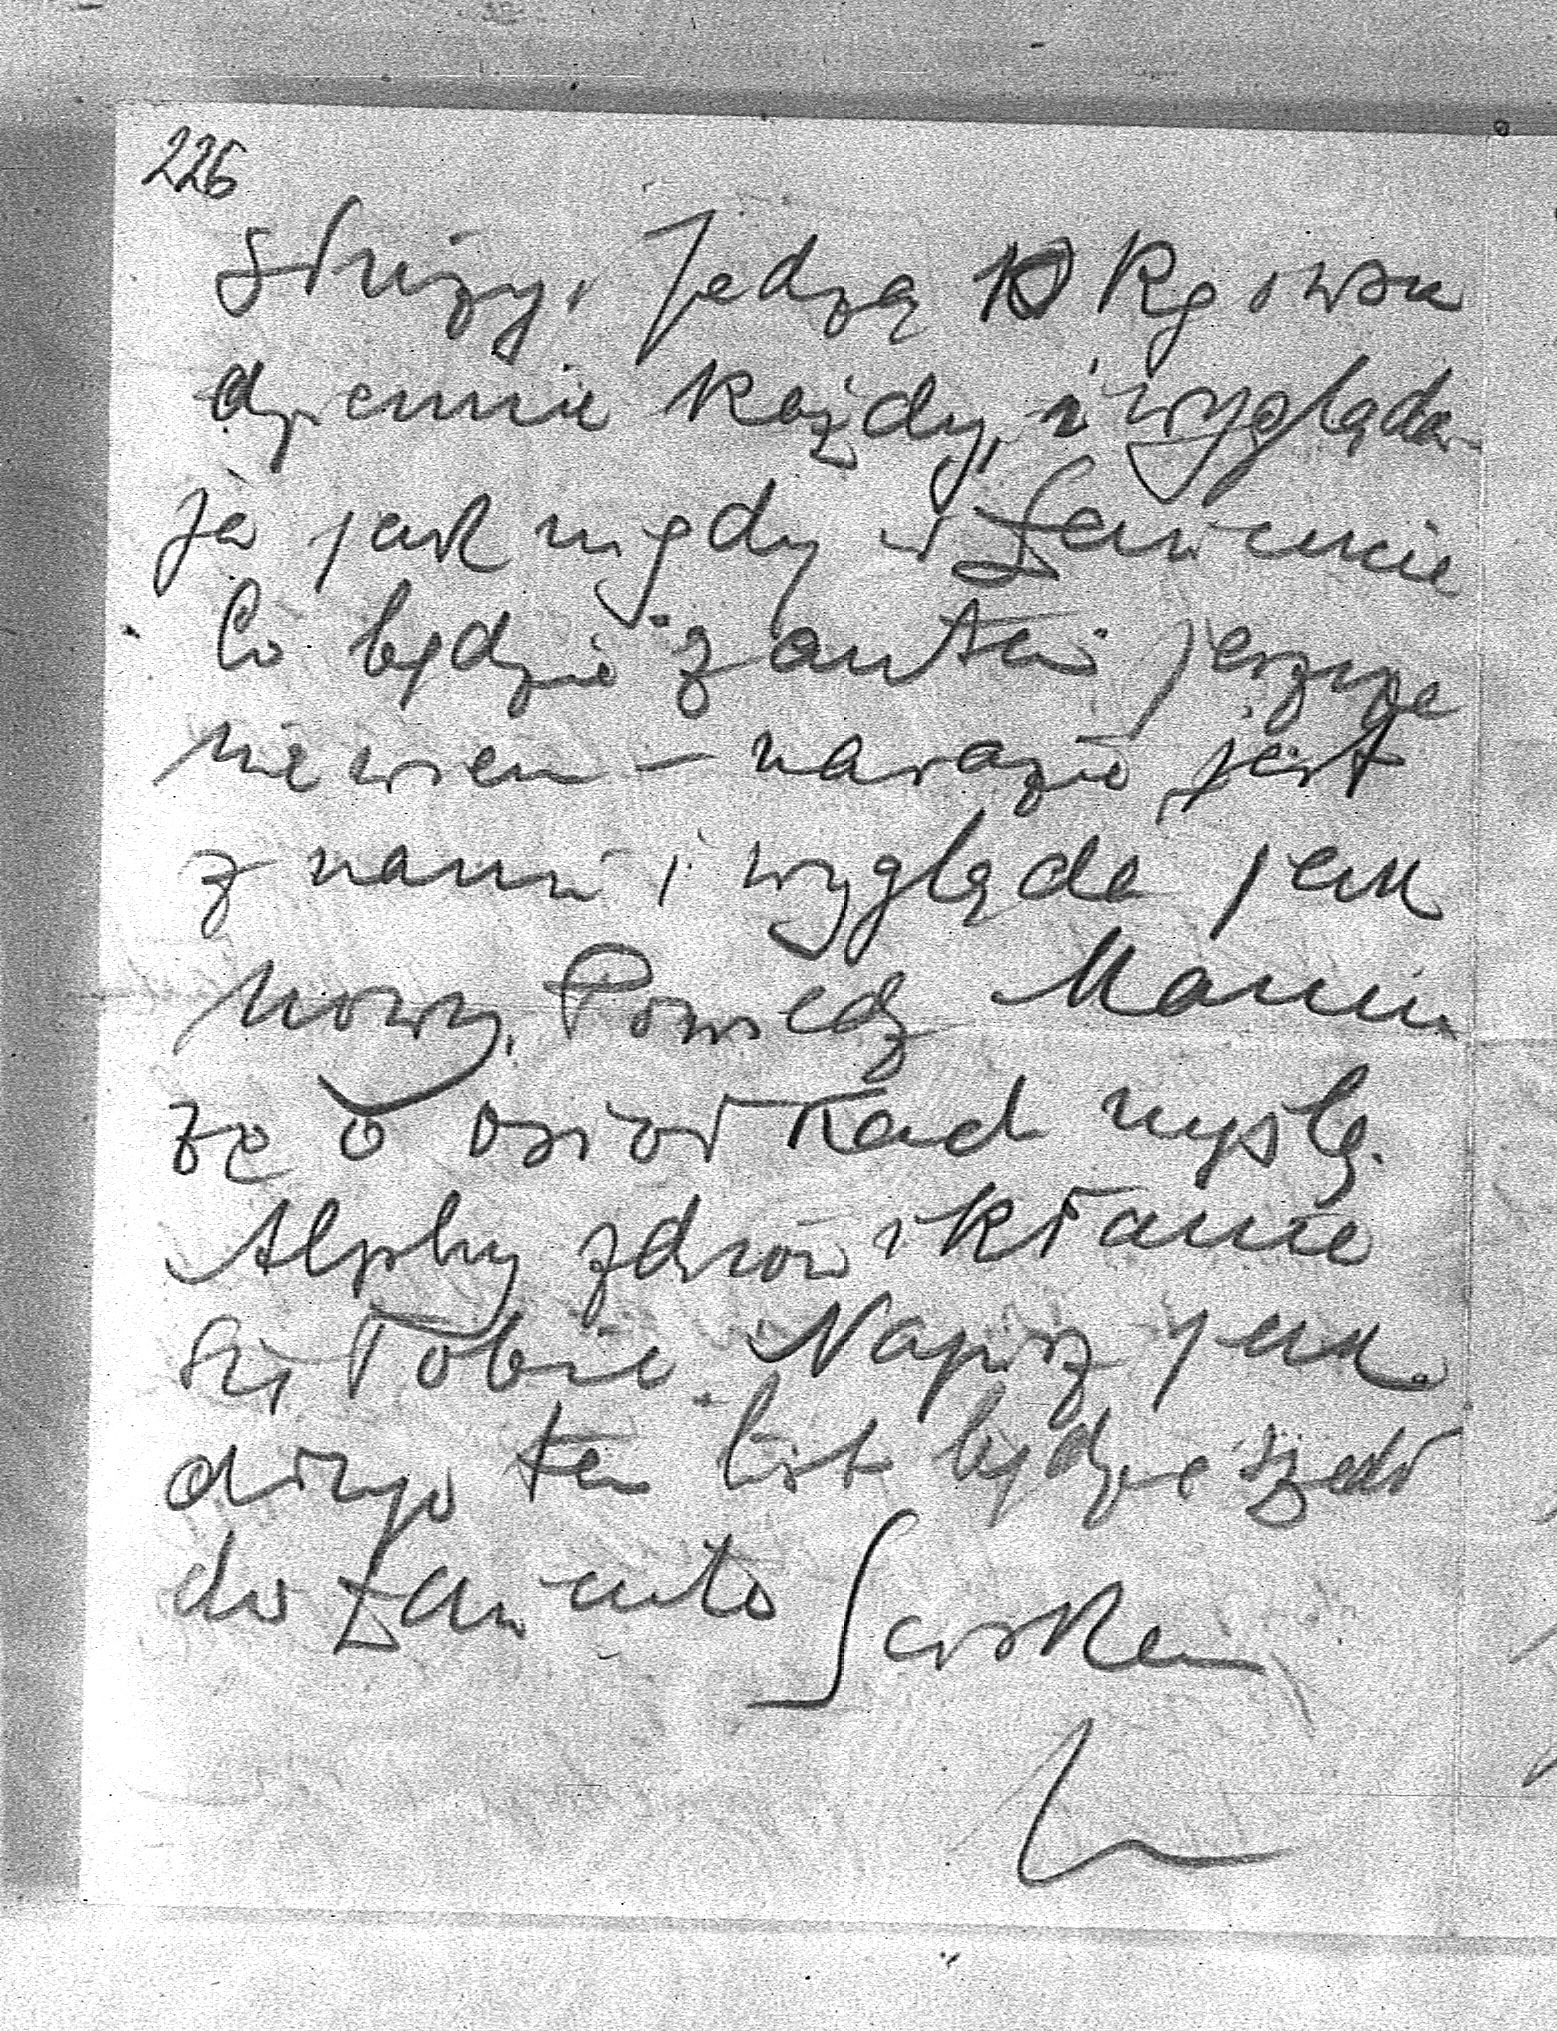 226
służy. Jedzą 10 Kg owsa
dziennie każdy, i wygląda-
ją jak nigdy w Ławencie
Co będzie z autem jeszcze
nie wiem — narazie jest
z nami i wygląda jak
nowy. Powiedz Mamie
że o osiołkach myślę.
Alphy zdrów i kłania
się Tobie. Napisz jak
długo ten list będzie szedł
do